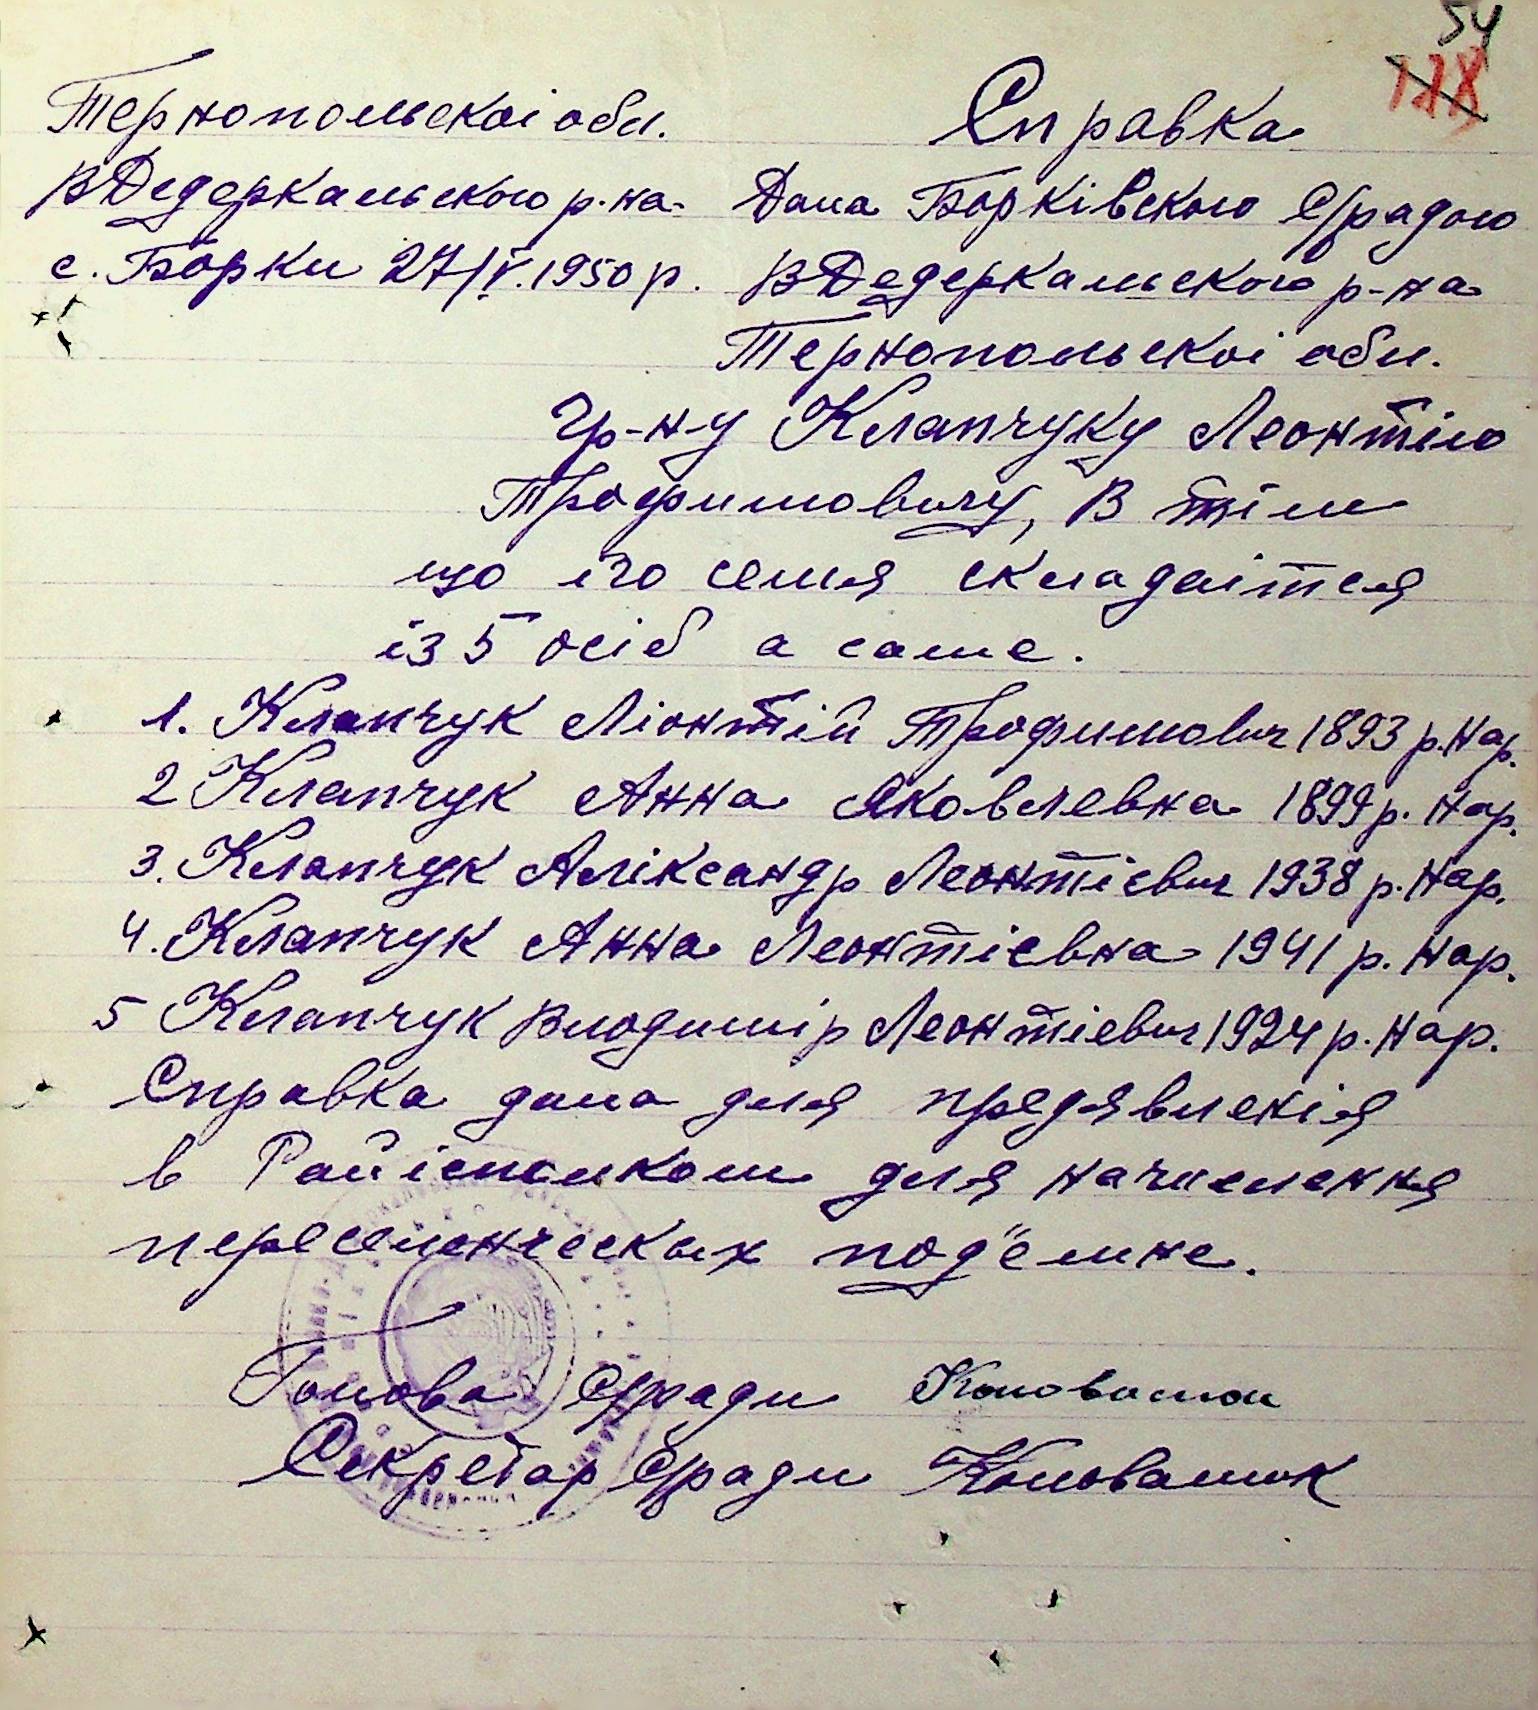 54
178
Тернопольскоі обл.
ВДедеркальского р-на.
с. Борки 27/IV.1950 р.
Справка
Дана Борківского С/радою
ВДедеркальского р-на
Тернопольскоі обл.
Гр-н-у Клапчуку Леонтію
Трофимовичу, В тім
що его семя складаітся
із 5 осіб а саме.
1. Клапчук Ліонтій Трофимович 1893 р. Нар.
2 Клапчук Анна Яковлевна 1899 р. Нар.
3. Клапчук Аліксандр Леонтієвич 1938 р. Нар.
4. Клапчук Анна Леонтієвна 1941 р. Нар.
5 Клапчук Влодимір Леонтієвич 1924 р. Нар.
Справка дана для предявленія
в Райісполком для начислення
переселенческых под"емне.
Голова С/ради
Секретар С/ради Коновалюк